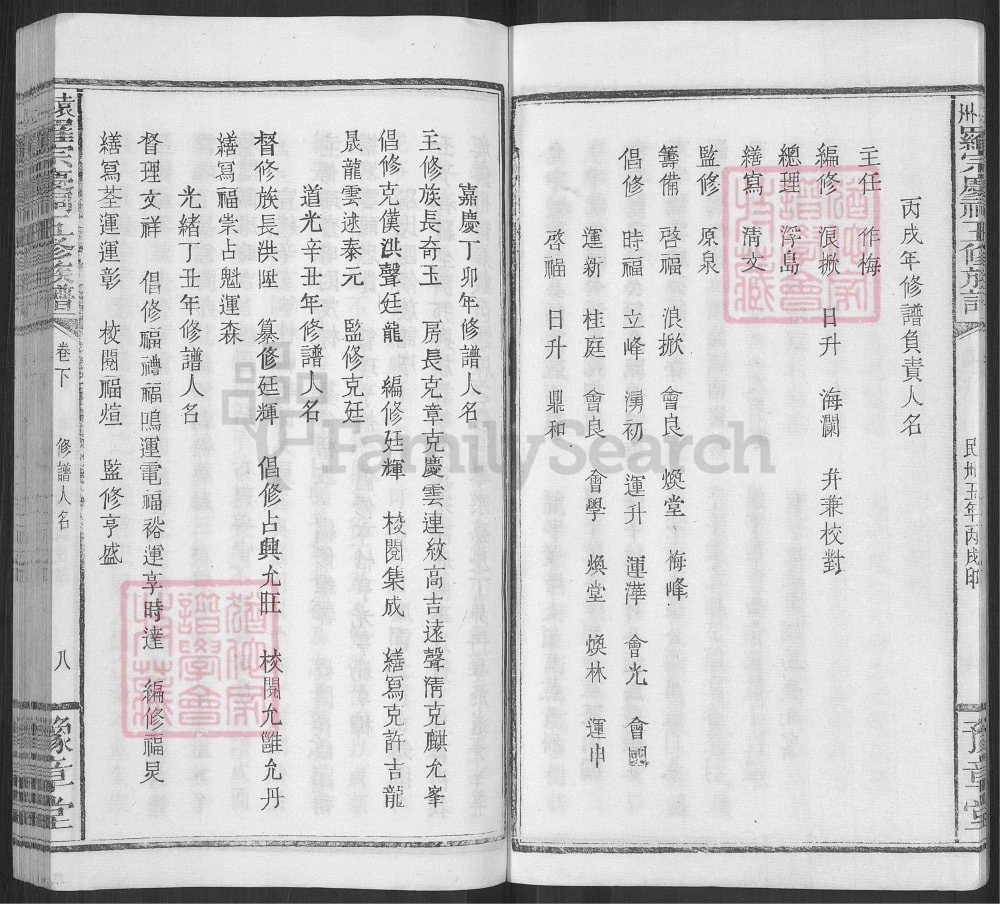 丙戌年修譜負責人名
主任 作梅
編修 浪掀 日升 海瀾 弁兼校對
總理 浮島
繕寫 清文
監修 原泉
籌備 啓福 浪掀 會良 煥堂 梅峰
倡修 時福 立峰 湧初 運升 運澤 會光 會
運新 桂庭 會良 會學 煥堂 煥林 運中
啓福 日升 鼎和
民卅五年丙戌印
豫章堂
嘉慶丁卯年修譜人名
主修族長奇玉 房長克章克慶雲連紋高吉遠聲清克麒允峯
倡修克儀洪聲廷龍 編修廷輝 校閱集成 繕寫克許吉龍
晟龍雲逑泰元 監修克廷
道光辛丑年修譜人名
督修族長洪陞 纂修廷輝 倡修占興允旺 校閱允雝允丹
繕寫福崇占魁運森
光緒丁丑年修譜人名
督理文祥 倡修福禮福鳴運電福裕運享時達 編修福炅
繕寫荃運運彰 校閱福煊 監修亨盛
袁羅宗慶五修族譜 卷下 修譜人名 八 豫章堂
FamilySearch